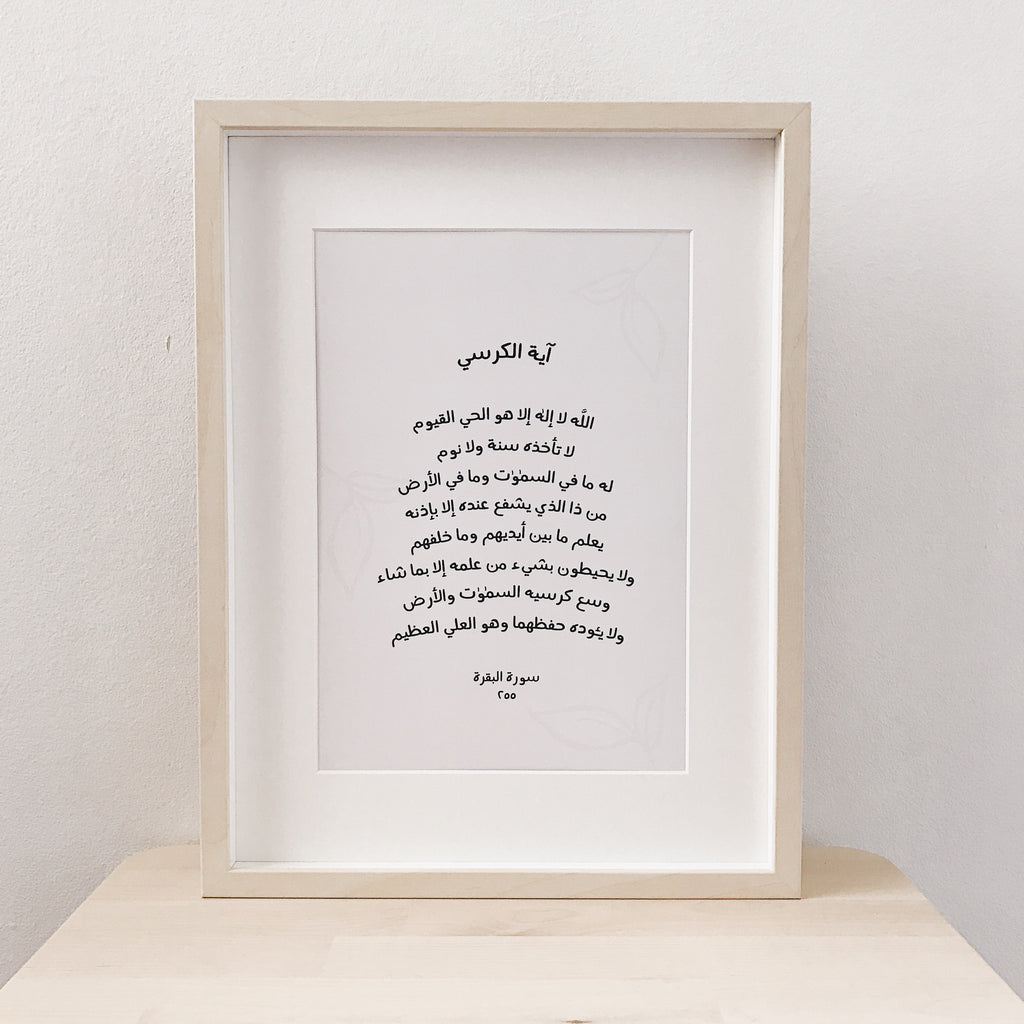 آية الكرسي
اللّٰه لا إلٰه إلا هو الحي القيوم
لا تأخذه سنة ولا نوم
له ما في السمٰوٰت وما في الأرض
من ذا الذي يشفع عنده إلا بإذنه
يعلم ما بين أيديهم وما خلفهم
ولا يحيطون بشيء من علمه إلا بما شاء
وسع كرسيه السمٰوٰت والأرض
ولا يئوده حفظهما وهو العلي العظيم
سورة البقرة
٢٥٥